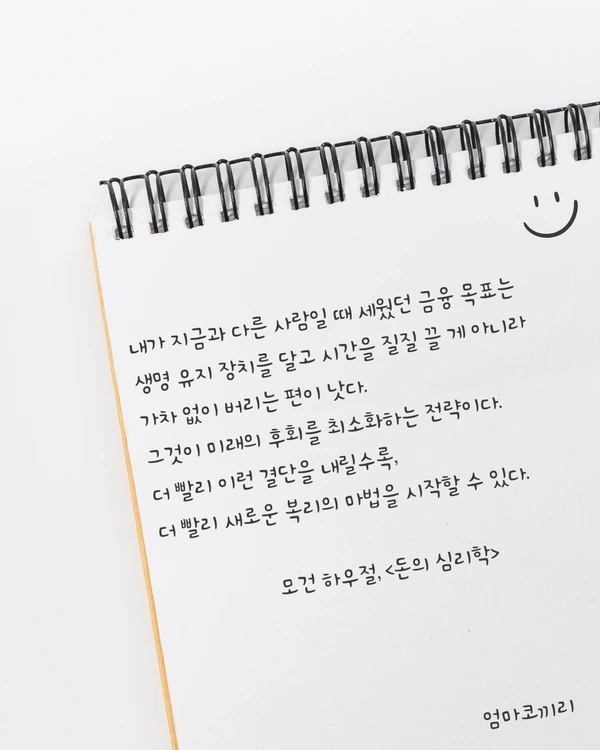 내가 지금과 다른 사람일 때 세웠던 금융 목표는
생명 유지 장치를 달고 시간을 질질 끌 게 아니라
가차 없이 버리는 편이 낫다.
그것이 미래의 후회를 최소화하는 전략이다.
더 빨리 이런 결단을 내릴수록,
더 빨리 새로운 복리의 마법을 시작할 수 있다.
모건 하우절, <돈의 심리학>
엄마코끼리